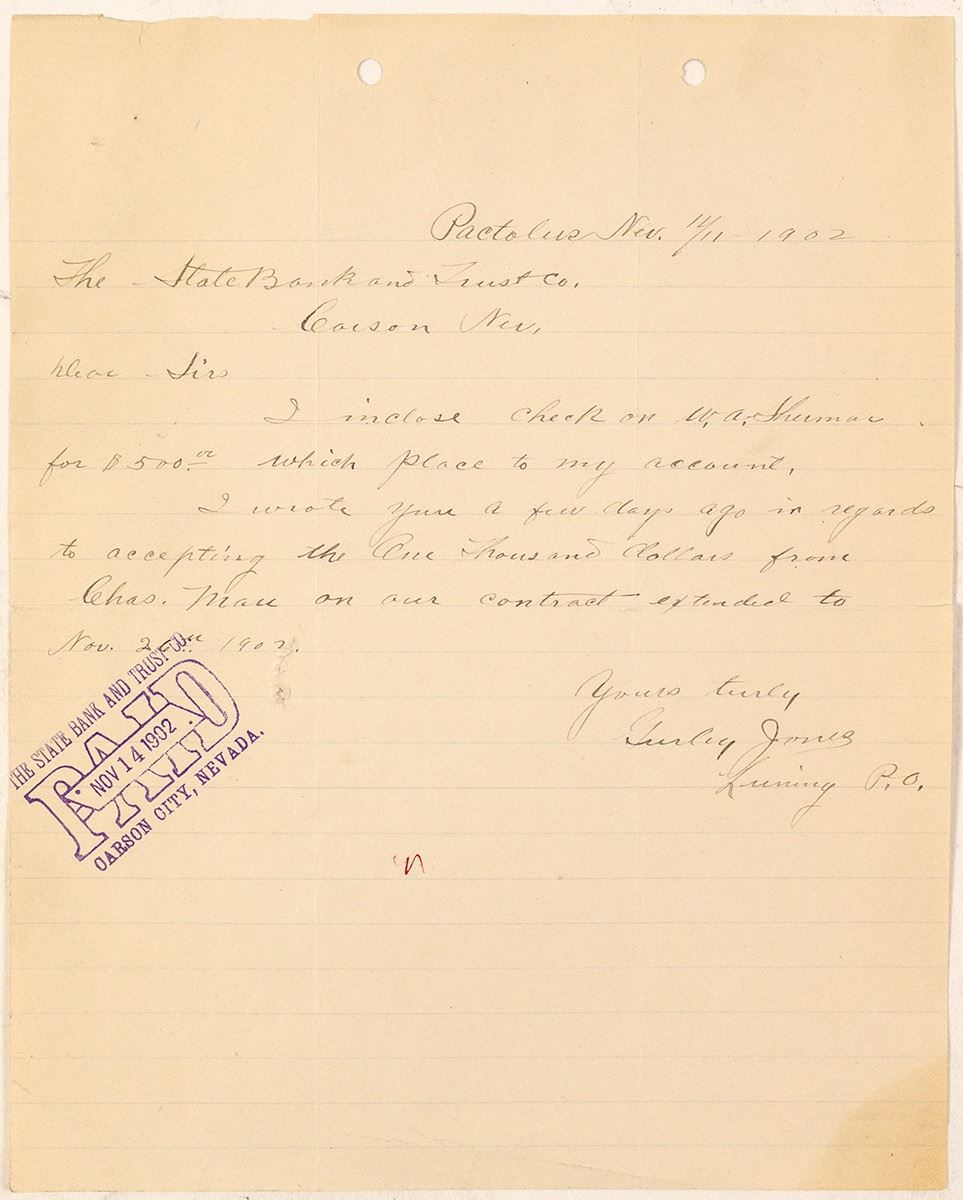 Pactolus Nev. 11/11 1902
The State Bank and Trust Co.
Carson Nev.
Dear Sirs
I inclose check on W. A. Shuman
for $500.00 which place to my account.
I wrote you a few days ago in regards
to accepting the One Thousand Dollars from
Chas. Mau on our contract extended to
Nov. 1902.
Yours turly
Gurley Jones
Luning P.O.
THE STATE BANK AND TRUST CO.
PAID
NOV 14 1902
CARSON CITY, NEVADA.